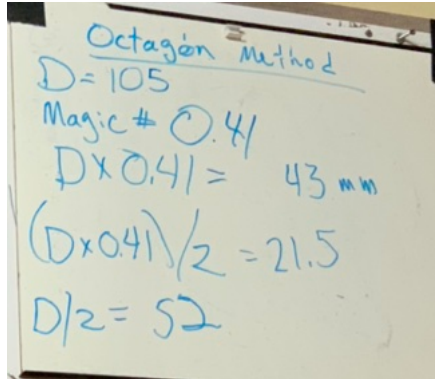 Octagon Method
D=105
Magic # 0.41
D x 0.41 = 43 mm
(D x 0.41)/2 = 21.5
D/2 = 52